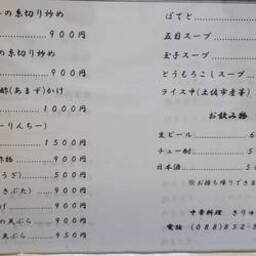 の糸切り炒め
900円
の糸切り炒め
900円
酢(あまず)かけ
1000円
ーりんちー)
1500円
酢物 900円
うざ) 500円
きぶた) 900円
げ 900円
の天ぷら 900円
天ぷら 950円
ぽてと
五目スープ
玉子スープ
とうもろこしスープ
ライス中(土佐市産
お飲み物
生ビール 6
チュー割 5
日本酒 5
※お持ち帰りできま
中華料理 きりゅ
電話 (088)852-8